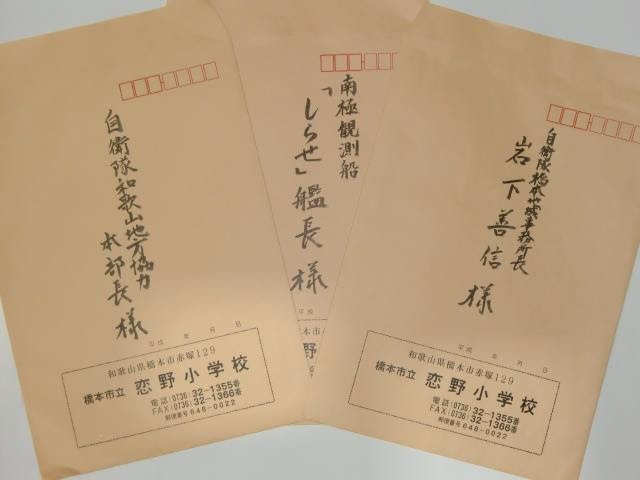 自衛隊和歌山地方協力
本部長様
平成 年 月 日
和歌山県橋本市赤塚129
橋本市立 恋野小学校
電話(0736)32-1355番
FAX(0736)32-1366番
郵便番号648-0022
南極観測船
「しらせ」艦長様
平成
和歌山県
橋本市立
自衛隊橋本地域事務所長
岩下善信様
平成 年 月 日
和歌山県橋本市赤塚129
橋本市立 恋野小学校
電話(0736)32-1355番
FAX(0736)32-1366番
郵便番号648-0022